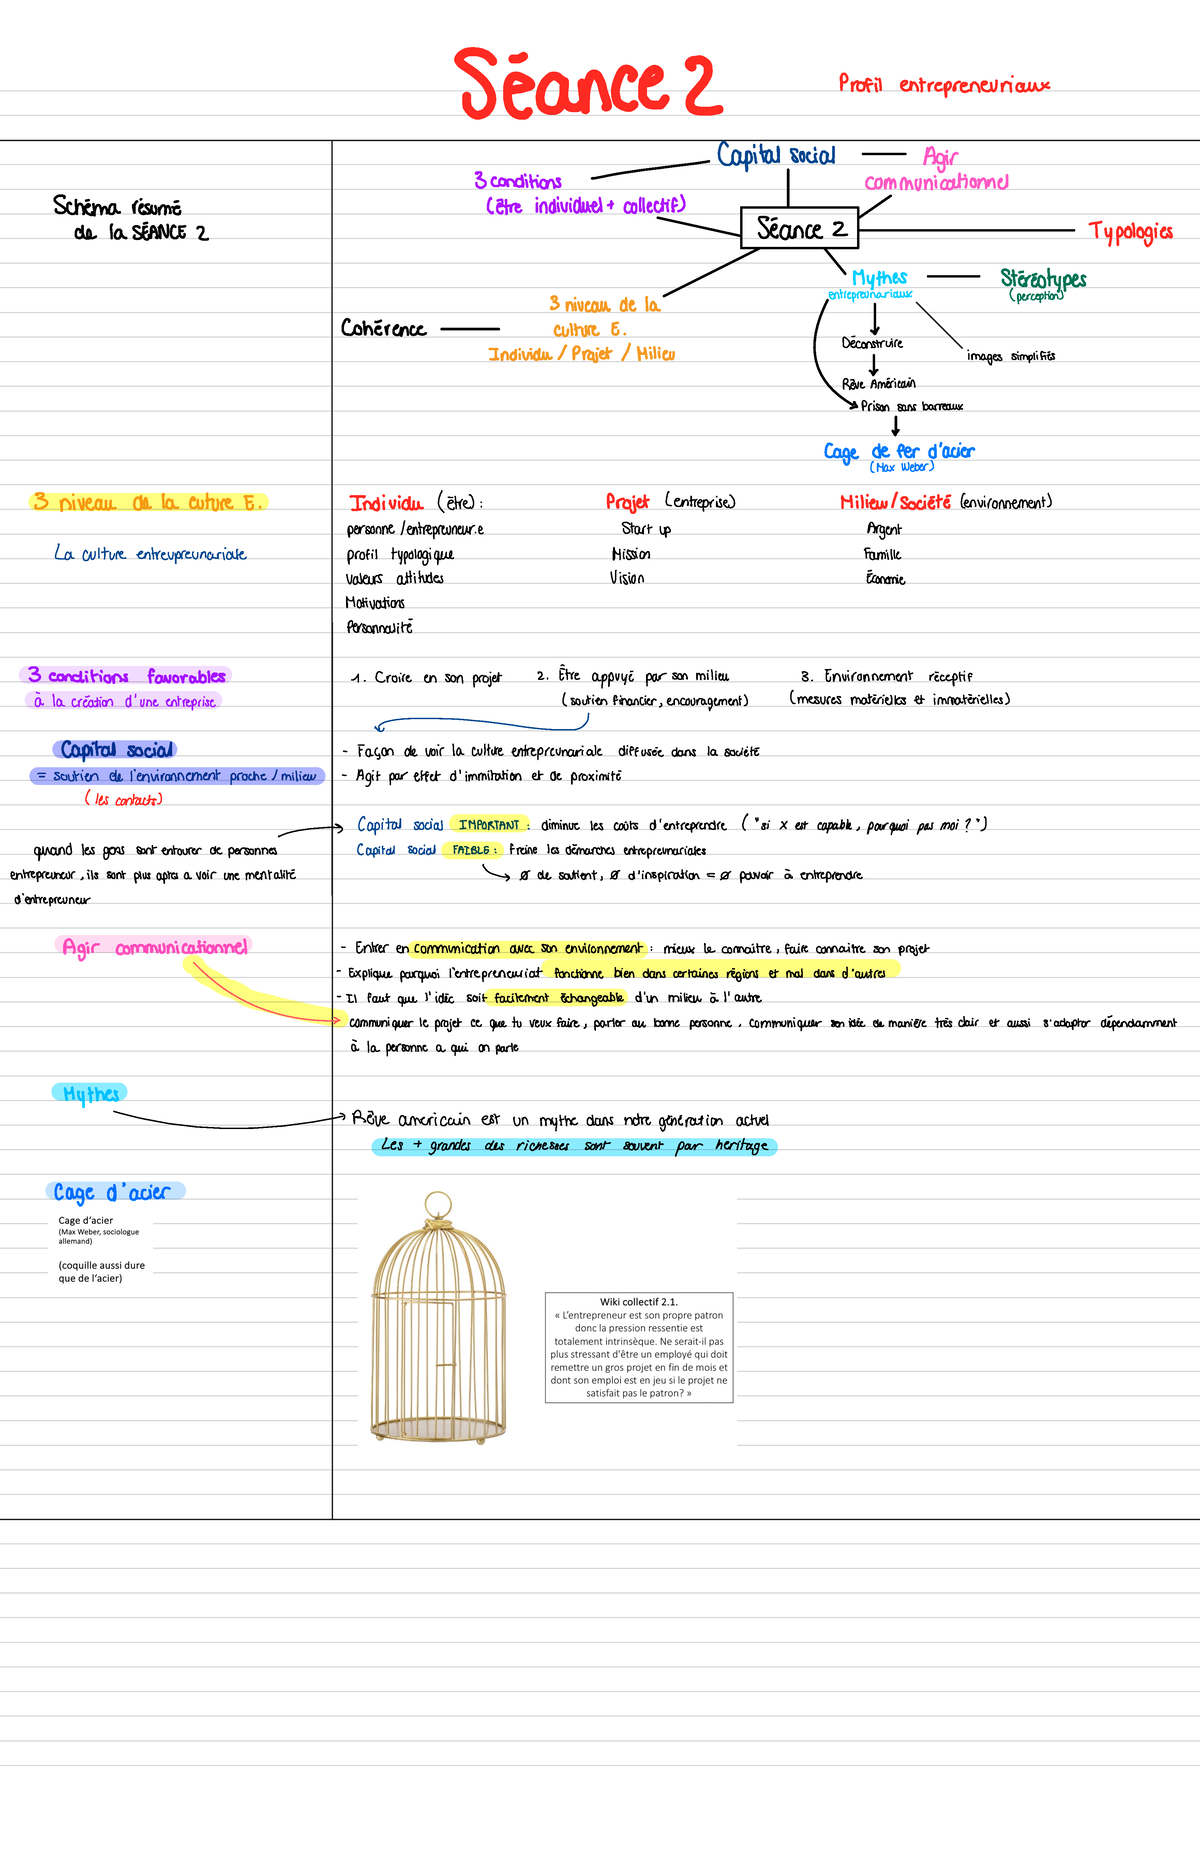 Séance 2
Profil entrepreneuriaux
Schéma résumé
de la SÉANCE 2
Capital social
Agir
communicationnel
3 conditions
(être individuel + collectif)
Séance 2
Typologies
Mythes
entrepreunariaux
Stéréotypes
(perception)
3 niveau de la
culture E.
Individu / Projet / Milieu
Cohérence
Déconstruire
images simplifiés
Rêve Américain
Prison sans barreaux
Cage de fer d'acier
(Max Weber)
3 niveau de la cuture E.
Individu (être) :
Projet (entreprise)
Milieu/Société (environnement)
personne /entrepreneur.e
Start up
Argent
La culture entreupreunariale
profil typologique
Mission
Famille
valeurs attitudes
Vision
Économie
Motivations
Personnalité
3 conditions favorables
à la création d'une enteprise
1. Croire en son projet
2. Être appuyé par son milieu
(soutien financier, encouragement)
3. Environnement réceptif
(mesures matérielles et immatérielles)
Capital social
= soutien de l'environnement proche / milieu
(les contacts)
- Façon de voir la culture entreprcunariale diffusée dans la société
- Agit par effet d'immitation et de proximité
Capital social IMPORTANT : diminue les coûts d'entreprendre ( "si X est capable, pourquoi pas moi ? ")
Capital social FAIBLE : freine les démarches entrepreunariales
∅ de soutient, ∅ d'inspiration = ∅ pouvoir à entreprendre
quand les gens sont entourer de personnes
entrepreneur, ils sont plus aptes a voir une mentalité
d'entrepreuneur
Agir communicationnel
- Entrer en communication avec son environnement : mieux le connaitre, faire connaitre son projet
- Explique parquoi l'entrepreneuriat fonctionne bien dans certaines régions et mal dans d'autres
- Il faut que l'idée soit facilement échangeable d'un milieu à l'autre
communiquer le projet ce que tu veux faire, parler au bonne personne. Communiquer son idée de manière très clair et aussi s'adapter dépendamment
à la personne a qui on parle
Mythes
Rêve americain est un mythe dans notre génération actuel
Les + grandes des richesses sont souvent par heritage
Cage d'acier
Cage d'acier
(Max Weber, sociologue
allemand)
(coquille aussi dure
que de l'acier)
Wiki collectif 2.1.
« L'entrepreneur est son propre patron
donc la pression ressentie est
totalement intrinsèque. Ne serait-il pas
plus stressant d'être un employé qui doit
remettre un gros projet en fin de mois et
dont son emploi est en jeu si le projet ne
satisfait pas le patron? »